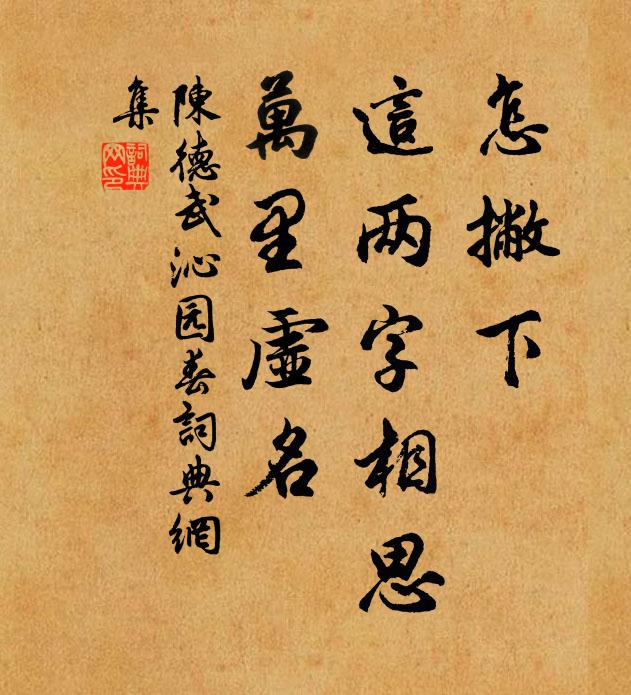 怎撇下
這两字相思
萬里虛名
陳德武沁园春詞典網
集
詞典
网印